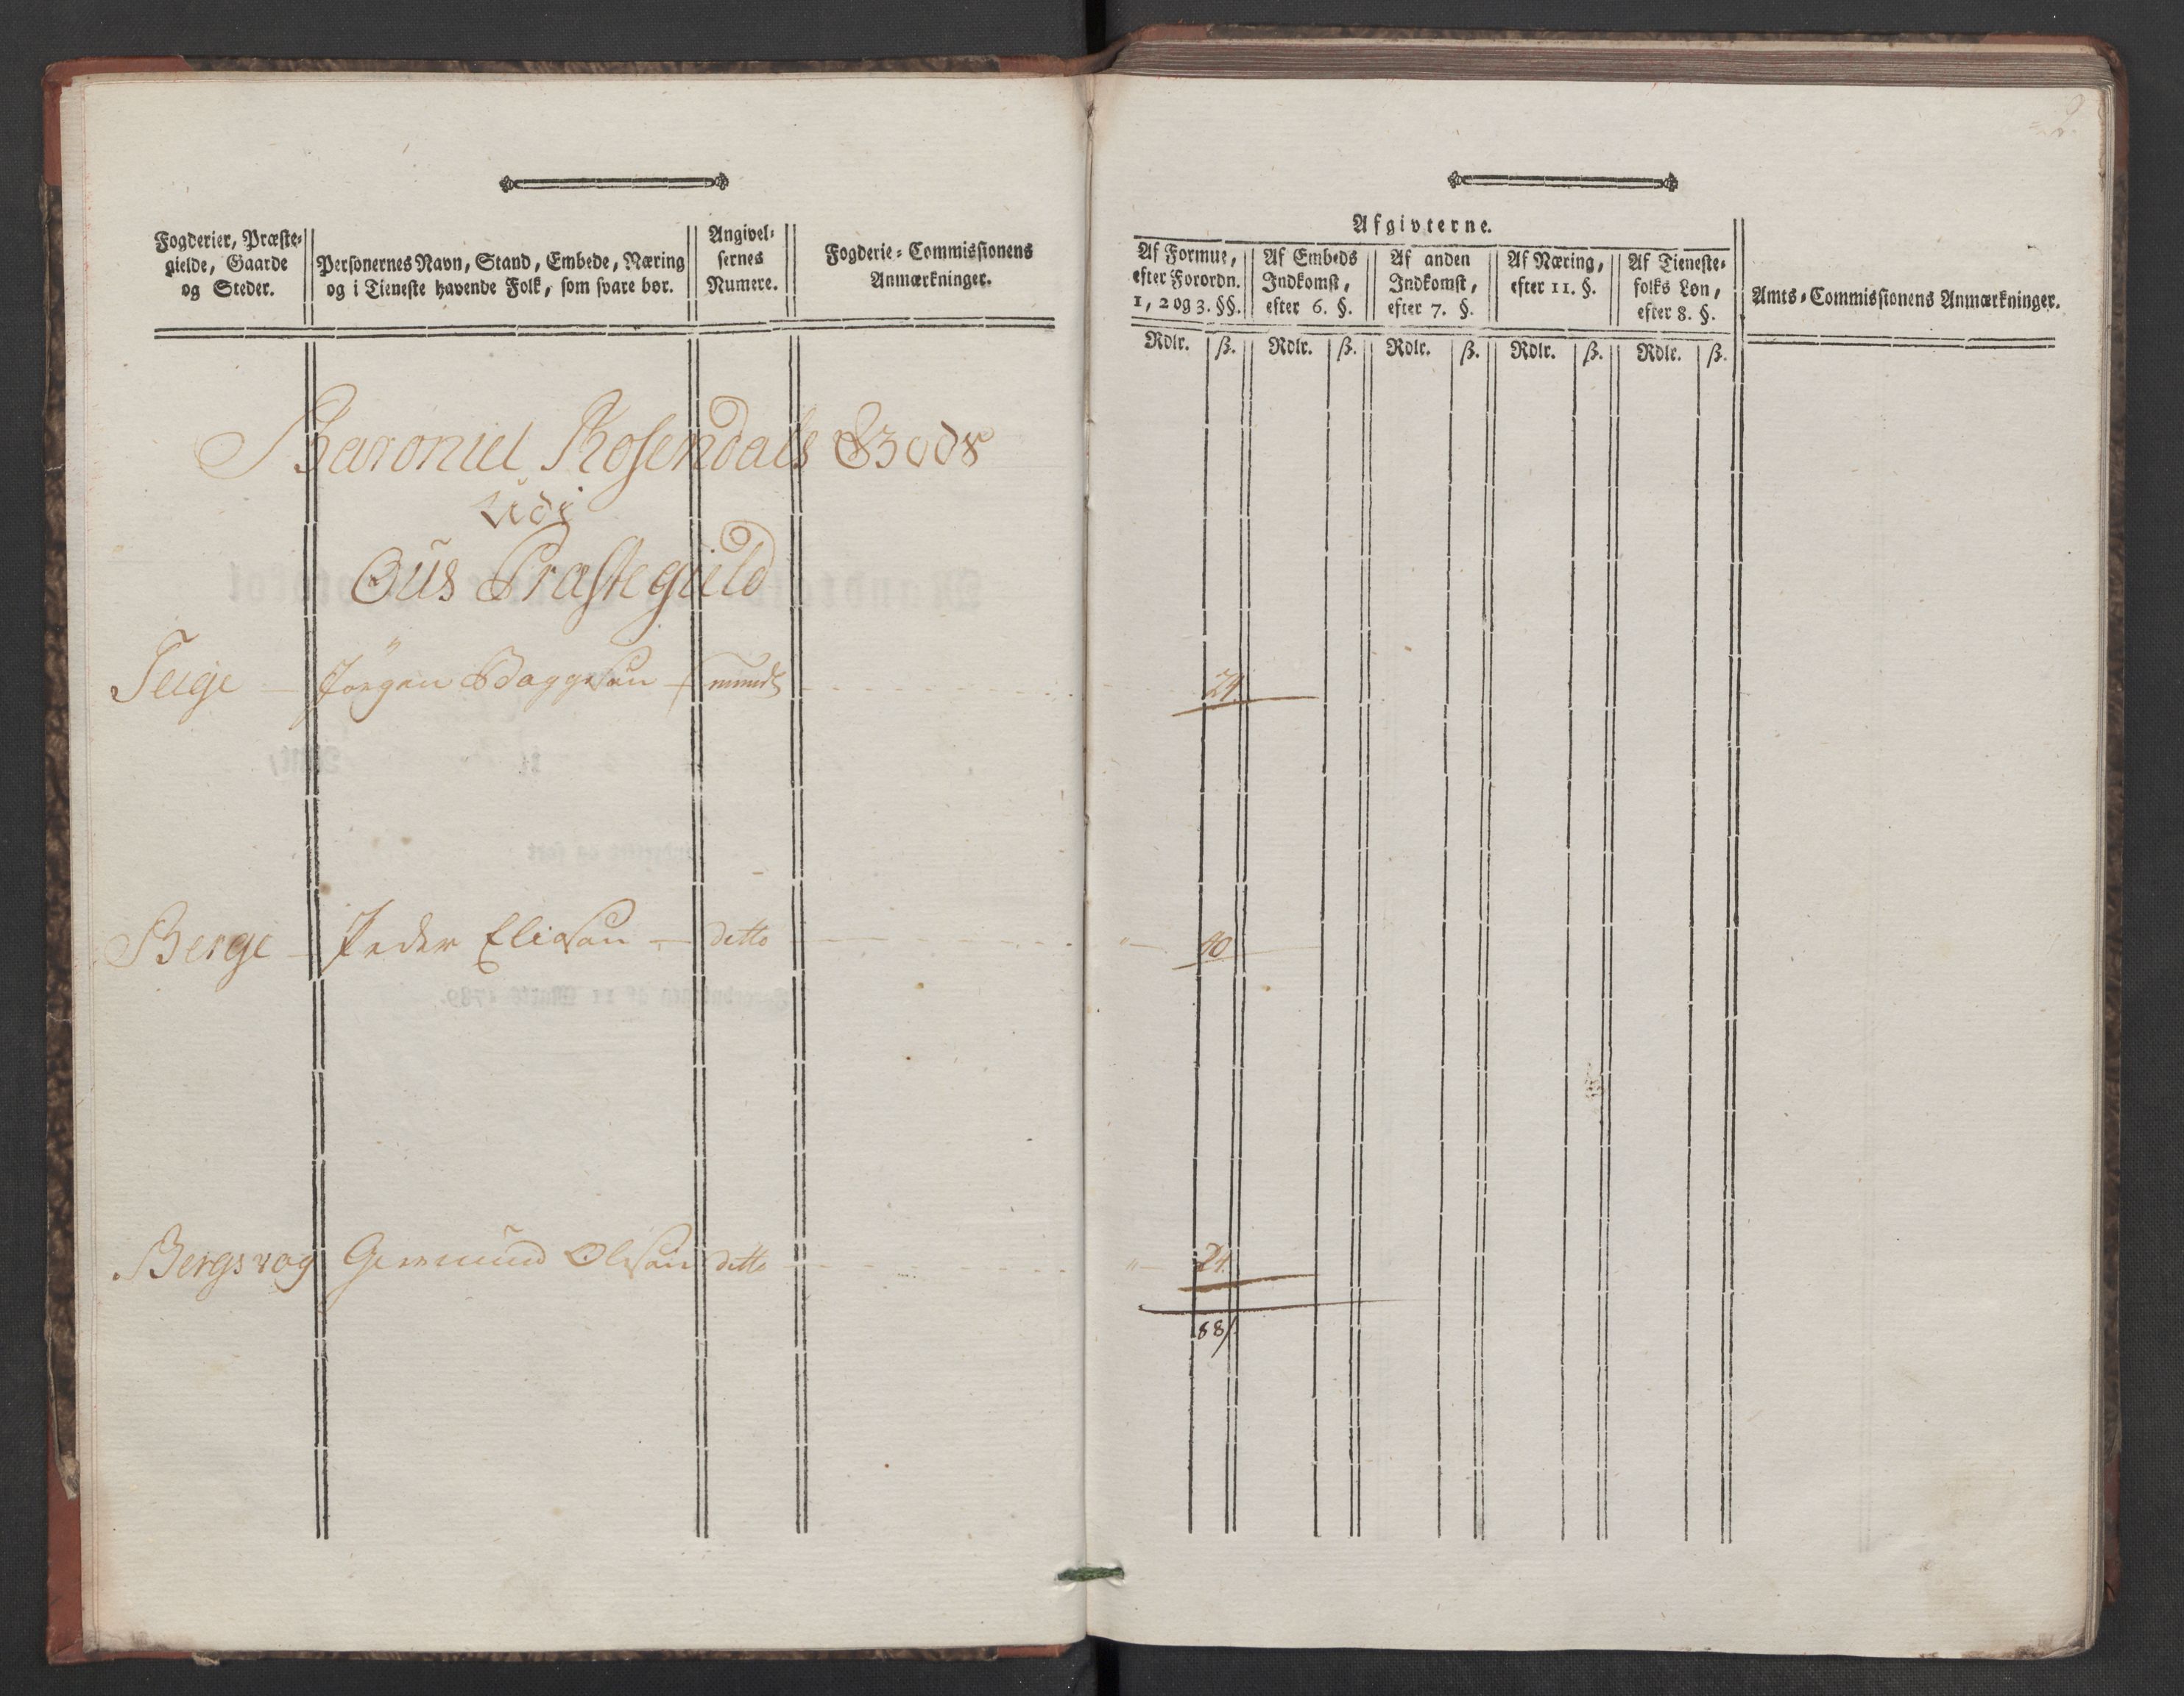 Fogderier, Præste-
gielde, Gaarde
og Steder.
Personernes Navn, Stand, Embede, Næring
og i Tieneste havende Folk, som svare bør.
Angivel-
sernes
Numere.
Fogderie-Commissionens
Anmærkninger.
Baroniet Rosendals Gods
Udi
Ous Præstegield
Teige — Jørgen Baggesen — mundt
Berge — Peder Eliesen — ditto
Bergsvog Germund Olesen ditto
2.
Afgivterne.
Af Formue,
efter Forordn.
1, 2 og 3. §§.
Af Embeds
Indkomst,
efter 6. §.
Af anden
Indkomst,
efter 7. §.
Af Næring,
efter 11. §.
Af Tieneste-
folks Løn,
efter 8. §.
Amts-Commissionens Anmærkninger.
Rdlr. ß. Rdlr. ß. Rdlr. ß. Rdlr. ß. Rdlr. ß.
24.
"— 40
"— 24.
88